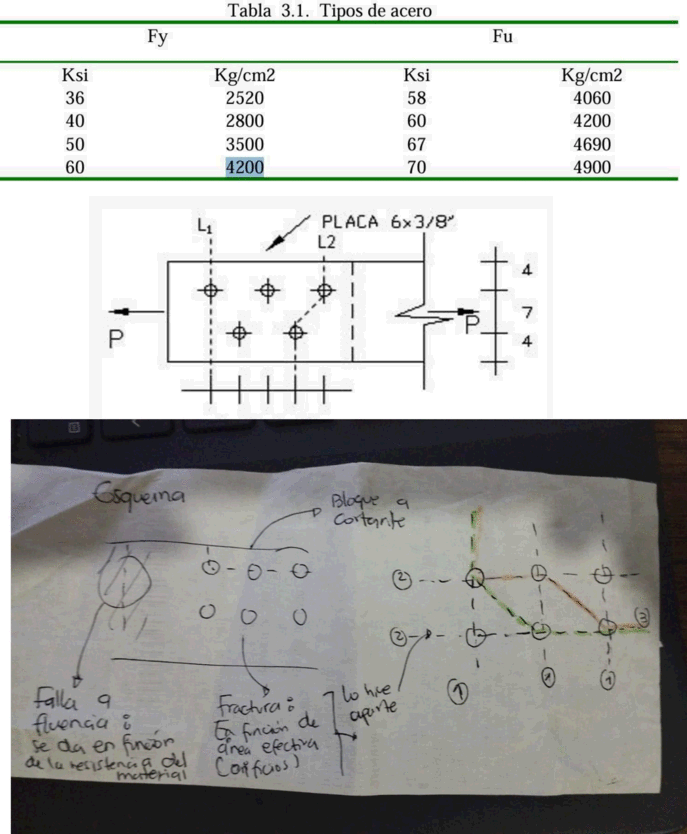 Tabla 3.1. Tipos de acero
Fy Fu
Ksi Kg/cm2 Ksi Kg/cm2
36 2520 58 4060
40 2800 60 4200
50 3500 67 4690
60 4200 70 4900
L1
PLACA 6x3/8"
L2
4
7
4
P
P
Esquema
Bloque a
cortante
2
2
3
1
1
1
Falla a
fluencia :
se da en función
de la resistencia del
material
Fractura :
En función de
área efectiva
(orificios)
Lo hice
aparte